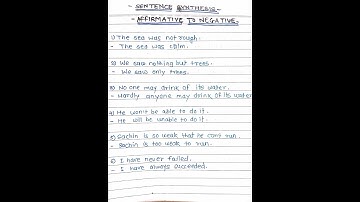 - SENTENCE SYNTHESIS -
- AFFIRMATIVE TO NEGATIVE.
1) The sea was not rough.
- The sea was calm.
2) We saw nothing but trees.
- We saw only trees.
3) No one may drink of its water.
- Hardly anyone may drink of its water
4) He won't be able to do it.
- He will be unable to do it.
5) Sachin is so weak that he can't run.
- Sachin is too weak to run.
6) I have never failed.
- I have always succeeded.